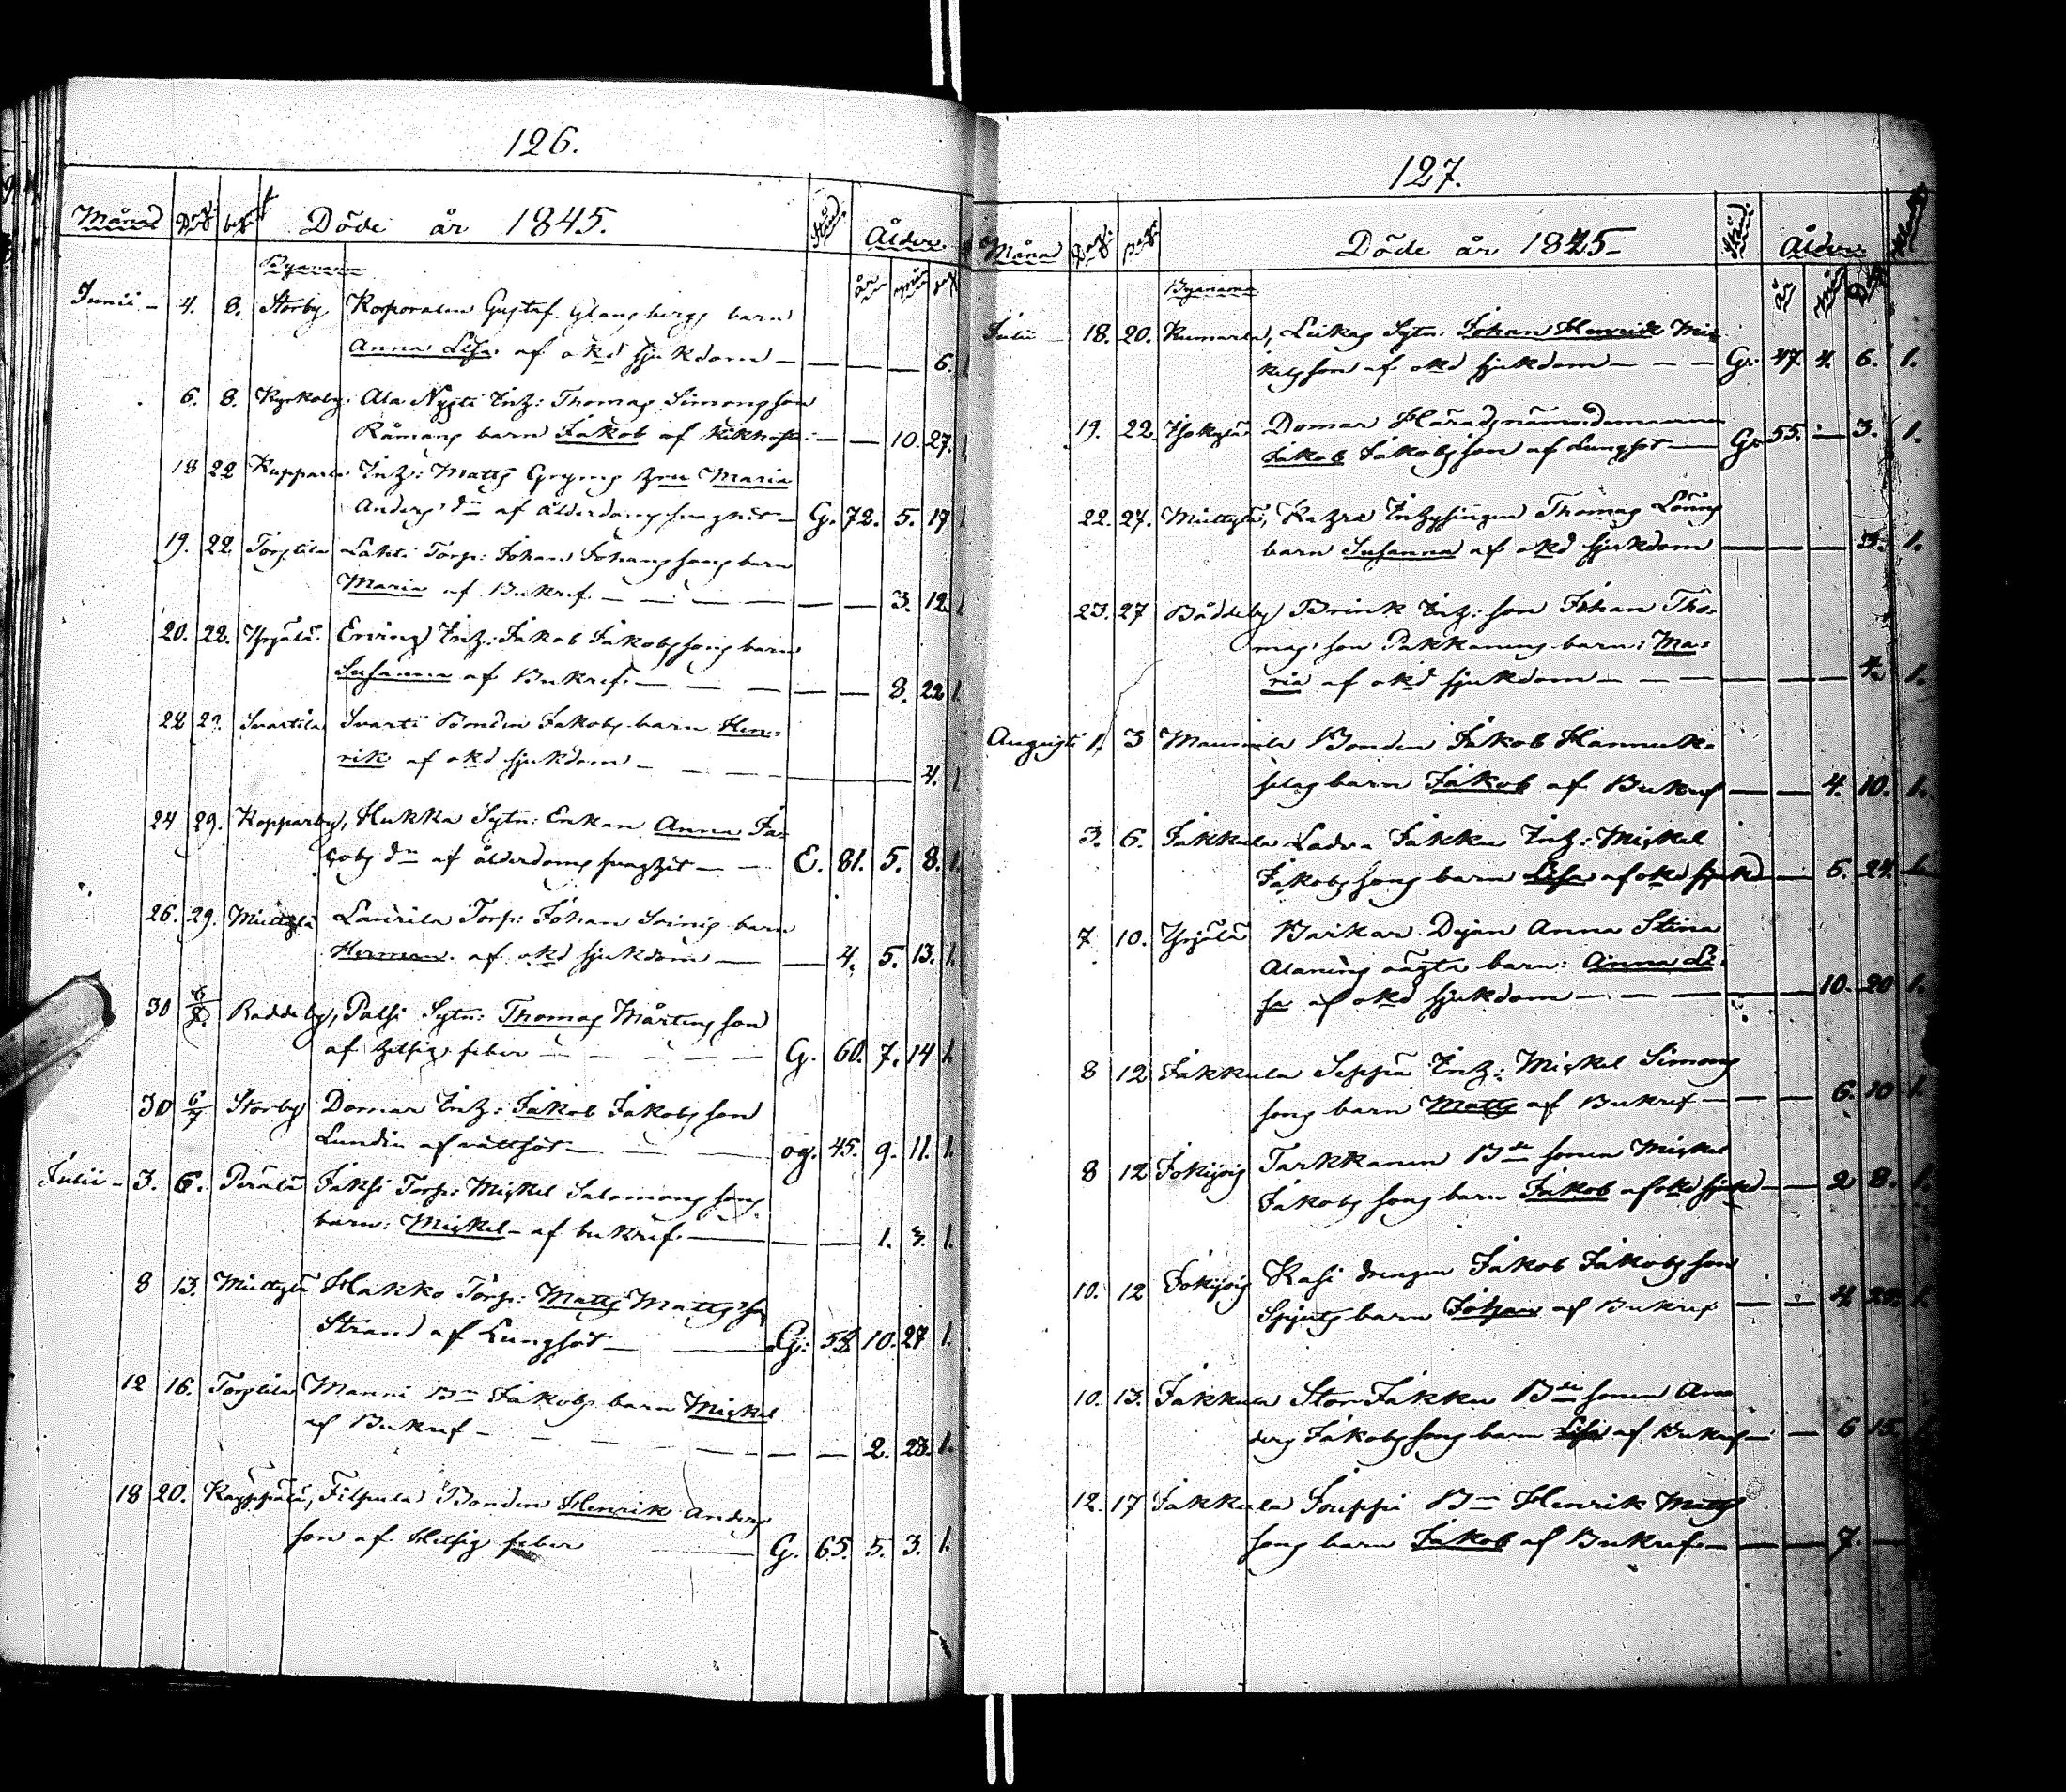 126.
Månad Dag. beg. Döde år 1845. Stånd. Ålder.
Byarna år mån dag
Junii - 4. 8. Storby Korporalen Gustaf Glansbergs barn
Anna Lisa af okd sjukdom — — — — 6. 1
6. 8. Kyrkoby. Ala Nysti Inh: Thomas Simonsson
Råmans barn Jakob af Kikhosta — — 10. 27. 1
18 22 Kupparla Inh: Matts Gryms hru Maria
Anders dr af ålderdoms svaghet — G. 72. 5. 17 1
19. 22. Torstila Lahti Torp: Johan Johanssons barn
Maria af Bukref — — — — — — 3. 12. 1
20. 22. Yrjälä Inh: Jakob Jakobssons barn
Susanna af Bukref. — — — — — 8. 22 1.
22 29. Svartila Svarti Bonden Jakobs barn Hen-
rik af okd sjukdom — — — — 4. 1
24 29. Kopparby, Hukka Sytn: Enkan Anna Ja-
cobs dr af ålderdoms svaghet — — E. 81. 5. 8. 1.
26. 29. Mulltylä Laurila Torp: Johan Soinis barn
Herman. af okd sjukdom — — 4. 5. 13. 1.
30 6/7. Raddeby, Palsi Sytn: Thomas Mårtensson
af hetsig feber — — — — — G. 60. 7. 14 1.
30 6/7 Storby Domar Inh: Jakob Jakobsson
Lundin af vattsot — — — og. 45. 9. 11. 1.
Julii - 3. 6. Perälä Jaksi Torp: Mickel Salomonssons
barn: Mickel - af bukref. — — — 1. 3. 1.
8 13. Mulltylä Hakko Torp: Matts Matts so
Strand af Lungsot — — G. 10. 27 1.
12 16. Torstila Manni Bn Jakobs barn Mickel
af Bukref — — — — — — — 2. 23. 1.
18 20. Kayppälä, Filpula Bonden Henrik Anders
son af Hetsig feber — G. 65. 5. 3. 1.
127.
Månad Dag. Beg. Döde år 1845 — Stånd. Ålder
Byanamn år mån Dag
Julii — 18. 20. Kumarla, Liikas Sytn: Johan Henrik Mic-
kelsson af okd sjukdom — — — G. 47. 4. 6. 1.
19. 22. Domar Häradsnämndemannen
Jakob Jakobsson af Lungsot — G. 55. — 3. 1.
22. 27. Mulltylä, Inhysingen Thomas Lönns
barn Susanna af okd sjukdom — — — 3. 1.
23. 27 Båddeby Brink Inh: son Johan Tho-
mas: son Pakkanens barn: Ma-
ria af okd sjukdom — — — — — — 4. 1.
Augusti 1. 3 Maunula Bonden Jakob Hannuk-
selas barn Jakob af Bukref — — 4. 10. 1.
3. 6. Jakkula Ladva Jakku Inh: Mickel
Jakobssons barn Lisa af okd sjukd — — 5. 24. 1.
7 10. Yrjälä Karikas Anna Stina
Alanens oägta barn: Anna Li-
sa af okd sjukdom — — — — — 10. 20 1.
8 12 Jakkula Seppä Inh: Mickel Simons
sons barn Matts af Bukref — — — 6. 10 1.
8 12 Jokijois Tarkkanen Bde sonen Mickel
Jakobs sons barn Jakob af okd sjukd — — 2 8. 1.
10. 12 Jokijois Kasi drengen Jakob Jakobsson
Spjuts barn Johan af Bukref — — 4. 20. 1.
10. 13. Jakkula Stor Jakku Bde sonen An-
ders Jakobssons barn Lisa af Bukref — — 6 15. 1
12. 17 Jakkula Juppi Bn Henrik Matts
sons barn Jakob af Bukref. — — — 7. —